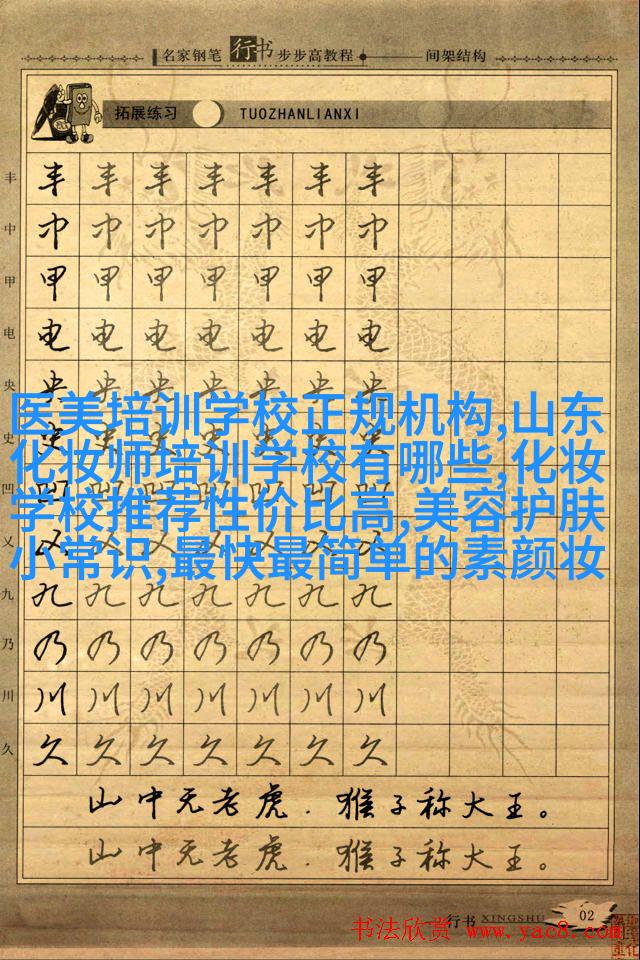 名家钢笔行书步步高教程 间架结构
拓展练习 TUOZHANLIANXI
丰 丰 丰 丰 丰 丰 丰 丰
中 中 中 中 中 中 中 中
甲 甲 甲 甲 甲 甲 甲 甲
电 电 电 电 电 电 电 电
央 央 央 央 央 央 央 央
史 史 史 史 史 史 史 史
凹 凹 凹 凹 凹 凹 凹 凹
义 义 义 义 义 义 义 义
九 九 九 九 九 九 九 九
乃 乃 乃 乃 乃 乃 乃 乃
川 川 川 川 川 川 川 川
久 久 久 久 久 久 久 久
医美培训学校正规机构,山东
化妆师培训学校有哪些,化妆
学校推荐性价比高,美容护肤
小常识,最快最简单的素颜妆
山中无老虎.猴子称大王。
山中无老虎.猴子称大王。
行书 XINGSHU 02
书法欣赏 www.yac8.com